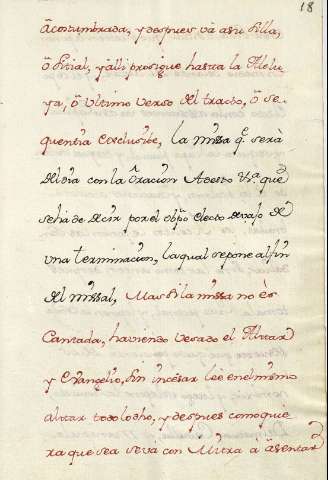 18
acostumbrada, y despues vâ a su Silla,
ò Sitial, y alli prosigue hasta la Alelu
ya, ò Ultimo verso del tracto, ò Se
quentia exclusibe, la missa q̃ será
del dia con la Oracion Adesto Vᵃ. que
se ha de decir por el obpõ electo devajo de
una terminacion, la qual se pone al fin
del missal, Mas si la missa no és
Cantada, haviendo vesado el Altar
y Evangelio, sin incesar lée en el mismo
altar todo lo dho, y despues como quie
ra que sea se vá con Mitra à asentar